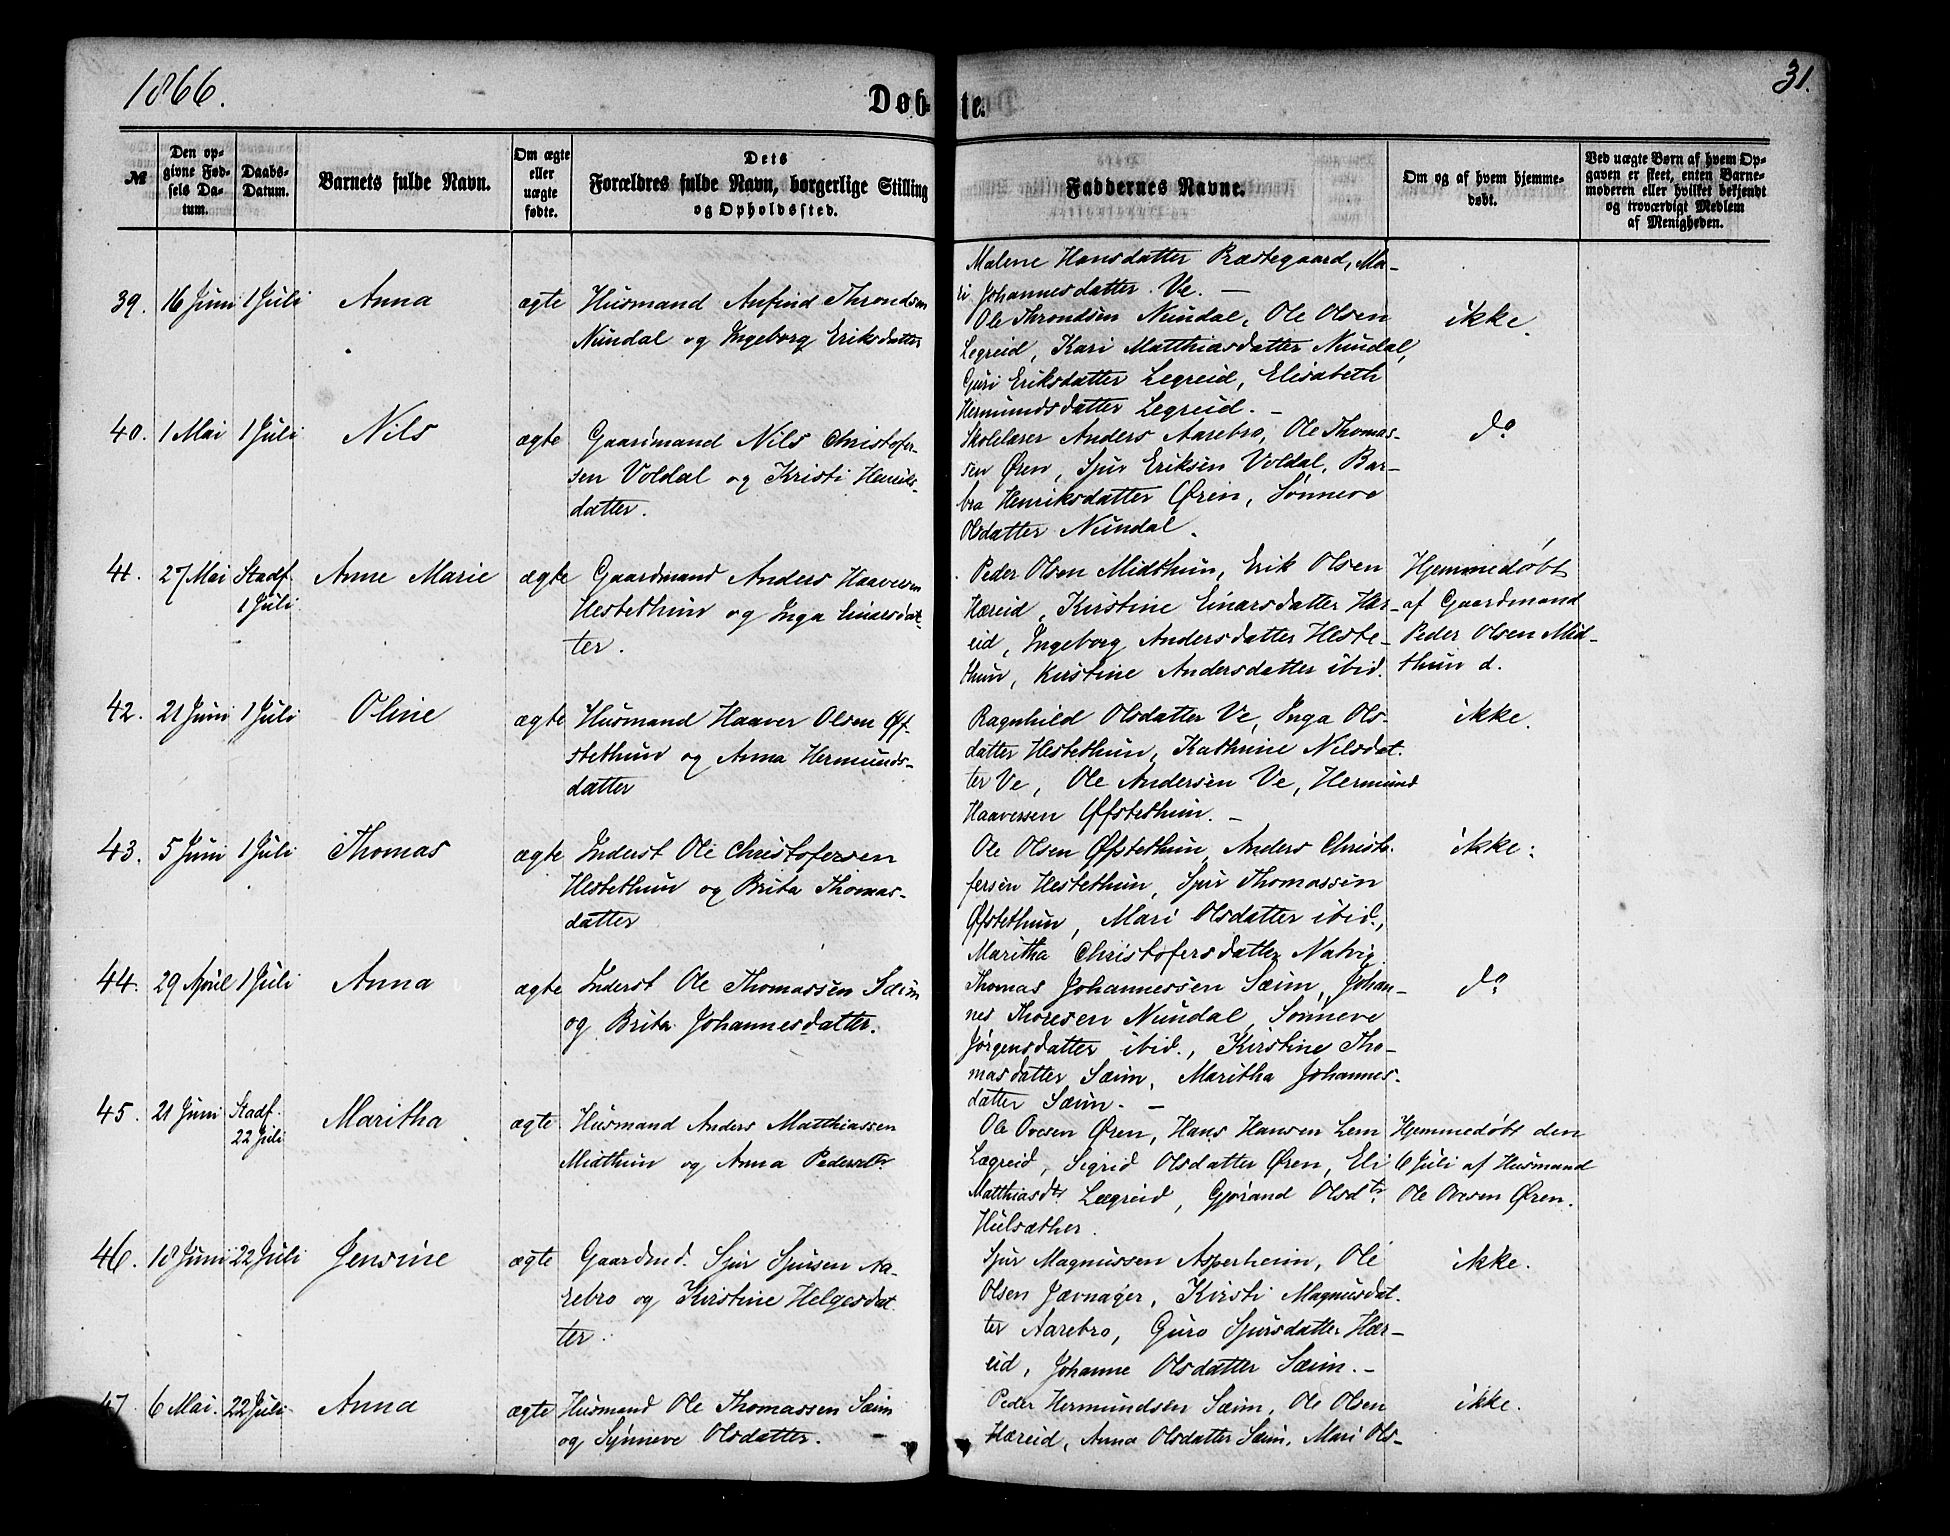 1866.
Døbte.
31.
№
Den opgivne Fødsels Datum.
Daabs-Datum.
Barnets fulde Navn.
Om ægte eller uægte fødte.
Dets Forældres fulde Navn, borgerlige Stilling og Opholdssted.
Faddernes Navne.
Om og af hvem hjemmedøbt.
Ved uægte Børn af hvem Opgaven er skeet, enten Barnemoderen eller hvilket bekjendt og troværdigt Medlem af Menigheden.
Malene Hansdatter Præstegaard, Ma-
ri Johannesdatter Ve. —
39. 16 Juni 1 Juli Anna ægte Husmand Anfind Throndsen
Nundal og Ingeborg Eriksdatter
Ole Throndsen Nundal, Ole Olsen
Legreid, Kari Matthiasdatter Nundal,
Guri Eriksdatter Legreid, Elisabeth
Hermundsdatter Legreid. —
ikke.
40. 1 Mai 1 Juli Nils ægte Gaardmand Nils Christofer-
sen Voldal og Kristi Henriks-
datter.
Skolelærer Anders Aarebro, Ole Thomas-
sen Øren, Sjur Eriksen Voldal, Bar-
bra Henriksdatter Øren, Sønneve
Olsdatter Nundal.
do
41. 27 Mai Stadf. 1 Juli Anne Marie ægte Gaardmand Anders Haaversen
Hestethun og Inga Einarsdat-
ter.
Peder Olsen Midthun, Erik Olsen
Hæreid, Kirstine Einarsdatter Hæ-
reid, Ingeborg Andersdatter Heste-
thun, Kirstine Andersdatter ibid.
Hjemmedøbt
af Gaardmand
Peder Olsen Mid-
thun d.
42. 21 Juni 1 Juli Oline ægte Husmand Haaver Olsen Øf-
stethun og Anna Hermunds-
datter
Ragnhild Olsdatter Ve, Inga Ols-
datter Hestethun, Kathrine Nilsdat-
ter Ve, Ole Andersen Ve, Hermund
Haaversen Øfstethun. —
ikke.
43. 5 Juni 1 Juli Thomas ægte Inderst Ole Christofersen
Hestethun og Brita Thomas-
datter
Ole Olsen Øfstethun, Anders Christo-
fersen Hestethun, Sjur Thomassen
Øfstethun, Mari Olsdatter ibid.,
Maritha Christofersdatter Natvig.
ikke.
44. 29 April 1 Juli Anna ægte Inderst Ole Thomassen Sæim
og Brita Johannesdatter.
Thomas Johannessen Sæim, Johan-
nes Thoresen Nundal, Sønneve
Jørgensdatter ibid., Kirstine Tho-
masdatter Sæim, Maritha Johannes-
datter Sæim. —
do
45. 21 Juni Stadf. 22 Juli Maritha ægte Husmand Anders Matthiassen
Midthun og Anna Pedersdtr
Ole Ovesen Øren, Hans Hansen Lem
Lægreid, Sigrid Olsdatter Øren, Eli
Matthiasdtr Lægreid, Gjørand Olsdtr
Hulsæther.
Hjemmedøbt den
6 Juli af Husmand
Ole Ovesen Øren.
46. 18 Juni 22 Juli Jensine ægte Gaardmd. Sjur Sjursen Aa-
rebro og Kirstine Helgesdat-
ter.
Sjur Magnussen Asperheim, Ole
Olsen Jævnager, Kirsti Magnusdat-
ter Aarebro, Guro Sjursdatter Hæ-
reid, Johanne Olsdatter Sæim. —
ikke.
47 6 Mai. 22 Juli Anna ægte Husmand Ole Thomassen Sæim
og Synneve Olsdatter. —
Peder Hermundsen Sæim, Ole Olsen
Hæreid, Anna Olsdatter Sæim, Mari Ols-
ikke.